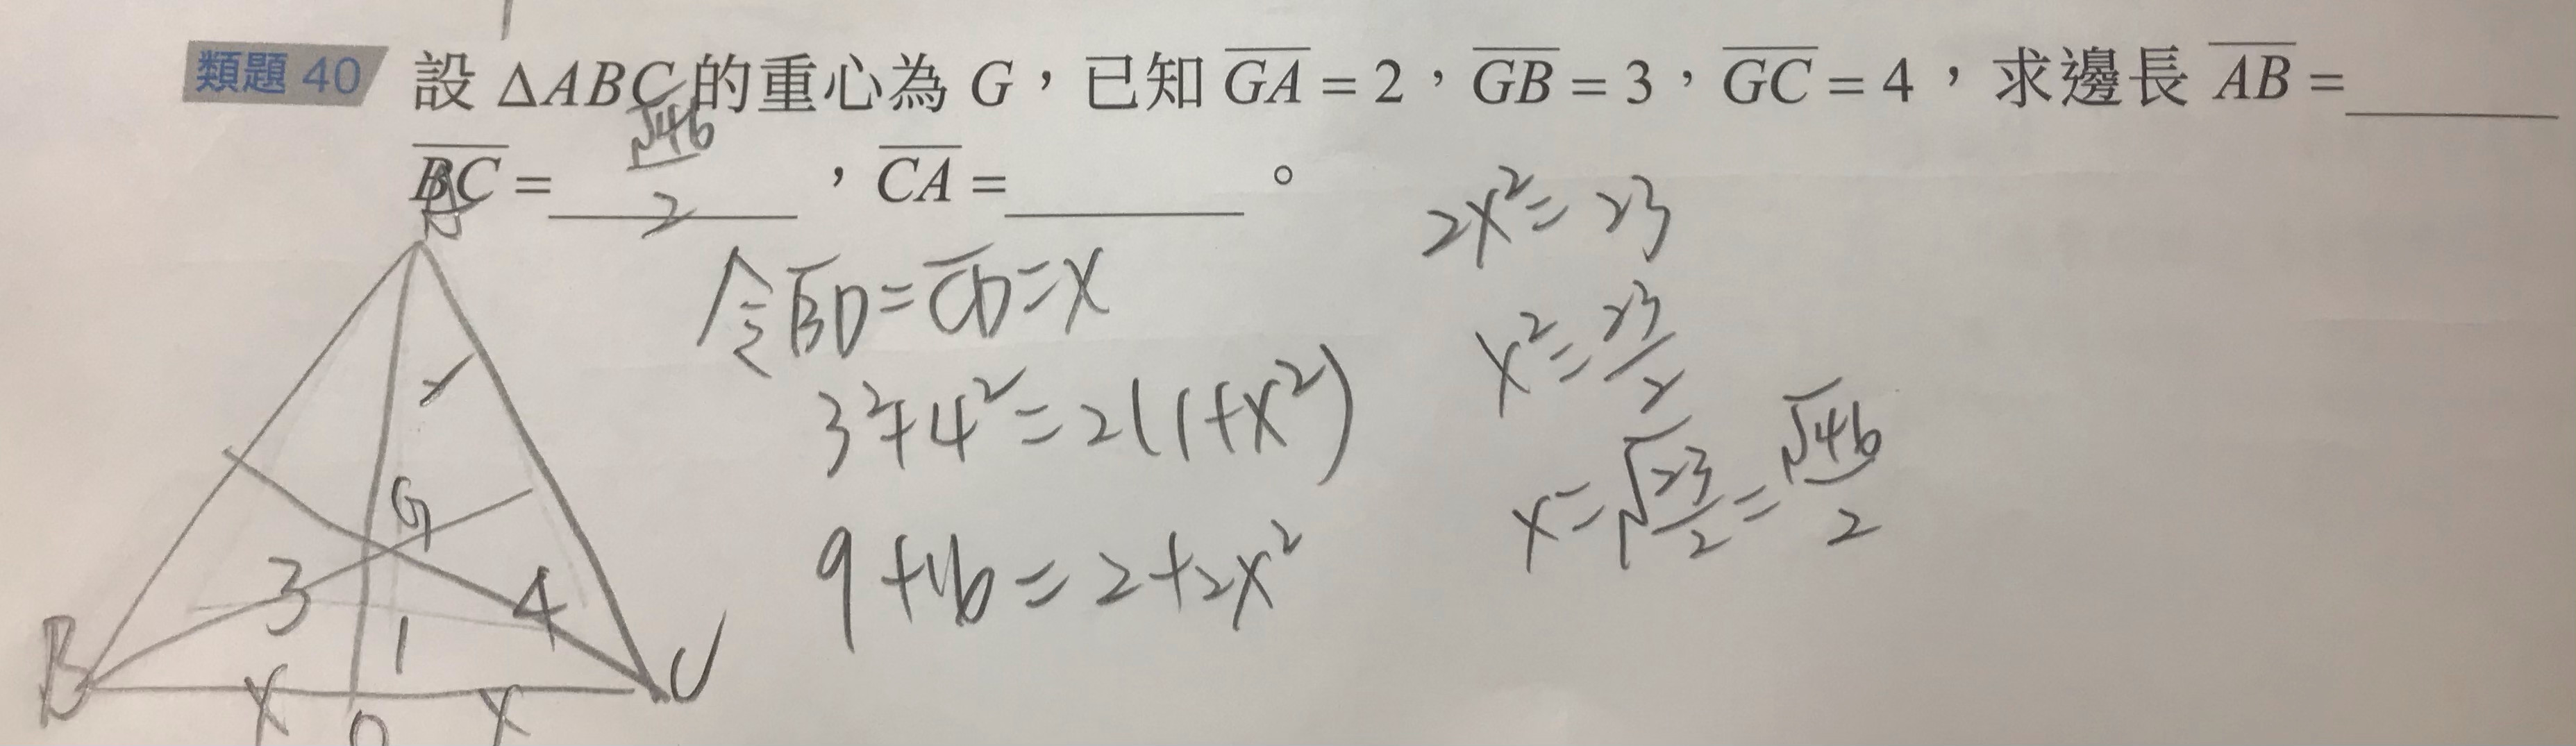 類題 40 設 ΔABC 的重心為 G，已知 GA = 2，GB = 3，GC = 4，求邊長 AB =
BC = √46/2 ，CA = 。
A
令 BD = CD = x
3²+4²=2(1+x²)
9+16=2+2x²
2x²=23
x²=23/2
x=√23/2=√46/2
G
3
4
1
B
C
x
D
x